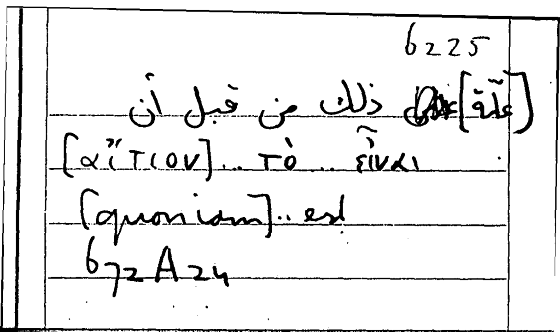 6225
[علّة] ذلك من قبل أن
[αἴτιον].. τὸ .. εἶναι
[quoniam].. est
672A24